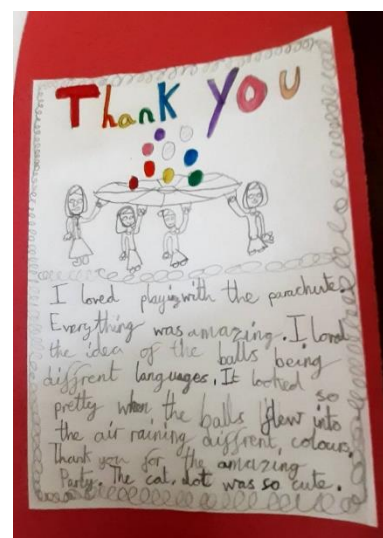 Thank YOU
I loved playing with the parachute.
Everything was amazing. I loved
the idea of the balls being
diffrent languages. It looked so
pretty when the balls flew into
the air raining diffrent colours.
Thank you for the amazing
Party. The cat, dot was so cute.